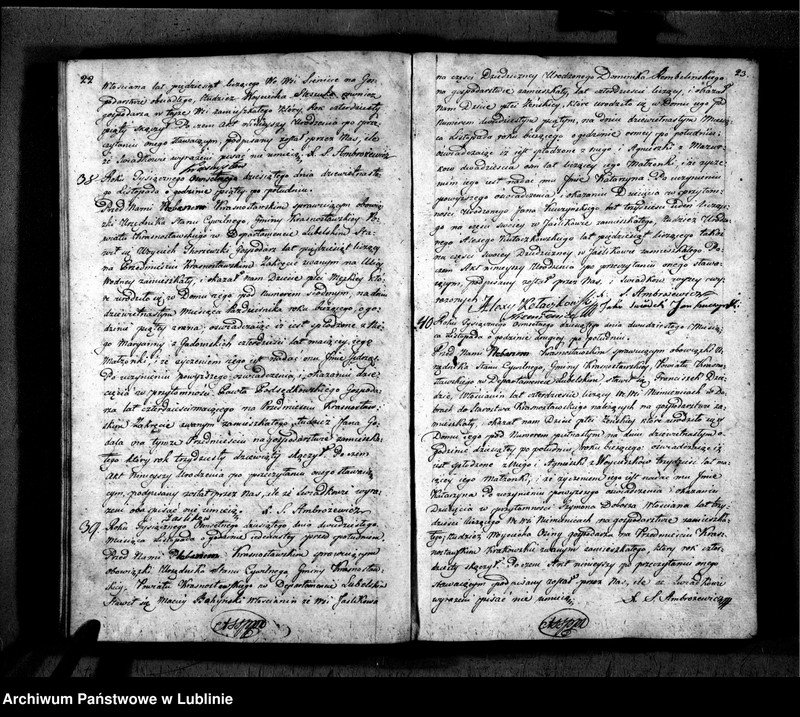 22
Włościana lat pięćdziesiąt liczącego We Wsi Siennicy na Gos-
podarstwie osiadłego, tudzież Woyciecha
gospodarza w teyże Wsi zamieszkałego który rok czterdziesty
piąty skączył. Po czem Akt ninieyszy Urodzenia po prze-
czytaniu onego Stawaiącym, podpisany został przez Nas, ile
że świadkowie wyrazili pisać nie umieią. X. S. Ambrożewicz
Przedmieście
38 Roku Tysiącznego Ośmsetnego dziesiątego dnia dziewiętnaste-
go Listopada o godzinie piąty po południu.
Przed Nami Plebanem Krasnostawskim sprawuiącym obowią-
zki Urzędnika Stanu Cywilnego, Gminy Krasnostawskiey Po-
wiatu Krasnostawskiego w Departamencie Lubelskim Sta-
wił się Woyciech Gospodarz lat pięćdziesiąt liczący
na Przedmieściu Krasnostawskim Zakręcie zwanym na Ulicy
Wodney zamieszkały, i okazał nam Dziecie płci Męskiey któ-
re urodziło się w Domu iego pod Numerem Siódmym, na dniu
dziewiętnastym Miesiąca Października roku bieżącego o go-
dzinie piąty zrana, oświadczaiąc iż iest spłodzone z Nie-
go Maryanny z czterdzieści lat maiącey, iego
Małżonki, i że życzeniem iego iest nadać mu Imie Jędrzey.
Po uczynieniu powyższego oświadczenia i okazaniu dzie-
cięcia w przytomności Pawła Podsędkowskiego Gospoda-
rza lat czterdzieści maiącego na Przedmieściu Krasnostaw-
skim Zakręcie zwanym zamieszkałego, tudzież Jana
na tymże Przedmieściu na gospodarstwie zamieszka-
łego który rok trzydziesty dziewiąty skączył. Po czem
Akt ninieyszy Urodzenia po przeczytaniu onego Stawaią-
cym, podpisany został przez Nas, ile że świadkowie wyra-
zili oba pisać nie umieią. X. S. Ambrożewicz
Jaślików
39 Roku Tysiącznego Ośmsetnego dziesiątego dnia dwudziestego
Miesiąca Listopada o godzinie iedenastey przed południem.
Przed Nami Plebanem Krasnostawskim sprawuiącym
obowiązki Urzędnika Stanu Cywilnego, Gminy Krasnostaw-
skiey, Powiatu Krasnostawskiego w Departamencie Lubelskim
Stawił się Maciey Bahyński Włościanin ze Wsi Jaślikowa
23
na części Dziedziczney Urodzonego Dominika Stembelińskiego
na gospodarstwie zamieszkały, lat czterdzieści liczący, i okazał
nam Dziecie płci Żeńskiey, które urodziło się w Domu iego pod
Numerem dwudziestym piątym, na dniu dziewiętnastym Miesią-
ca Listopada roku bieżącego o godzinie osmey po południu,
oświadczaiąc iż iest spłodzone z niego i Agnieszki z
dwadzieścia osm lat liczącey iego Małżonki, i że życze-
niem iego iest nadać mu Imie Katarzyna. Po uczynieniu
powyższego oświadczenia i okazaniu Dziecięcia w przytom-
ności Urodzonego Jana Kuczyńskiego lat trzydzieści liczące-
go na części swoiey w Jaślikowie zamieszkałego, tudzież Urodzo-
nego Alexego Kutaczkowskiego lat pięćdziesiąt liczącego także
na części swoiey Dziedziczney w Jaślikowie zamieszkałego. Po
czem Akt ninieyszy Urodzenia po przeczytaniu onego stawa-
iącym, podpisany został przez Nas, i świadków wyżey wy-
rażonych. X. S. Ambrożewicz
Jako świadek Jan Kuczyński
40 Roku Tysiącznego Ośmsetnego dziesiątego dnia dwudziestego Miesią-
ca Listopada o godzinie drugiey po południu.
Przed Nami Plebanem Krasnostawskim sprawuiącym obowiązki U-
rzędnika Stanu Cywilnego, Gminy Krasnostawskiey, Powiatu Krasno-
stawskiego w Departamencie Lubelskim stawił się Franciszek
Włościanin lat czterdzieści liczący We Wsi w Do-
brach do Starostwa Krasnostawskiego należących na gospodarstwie za-
mieszkały, i okazał nam Dziecie płci Żeńskiey które urodziło się w
Domu iego pod Numerem piętnastym na dniu dziewiętnastym o
Godzinie dziesiąty po południu, roku bieżącego: oświadczaiąc iż
iest spłodzone z Niego i Agnieszki z trzydzieści lat ma-
iącey iego Małżonki, i że życzeniem iego iest nadać mu Imie
Katarzyna. Po uczynieniu powyższego oświadczenia i okazaniu
Dziecięcia w przytomności Szymona Włościana lat trzy-
dzieści liczącego We Wsi na gospodarstwie zamieszka-
łego, tudzież Woyciecha gospodarza na Przedmieściu Kras-
nostawskim Krakowski zwanym zamieszkałego, który rok czter-
dziesty skączył. Po czem Akt ninieyszy po przeczytaniu onego
stawaiącym podpisany został przez Nas, ile że świadkowie
wyrazili pisać nie umieią.
X. S. Ambrożewicz
Archiwum Państwowe w Lublinie